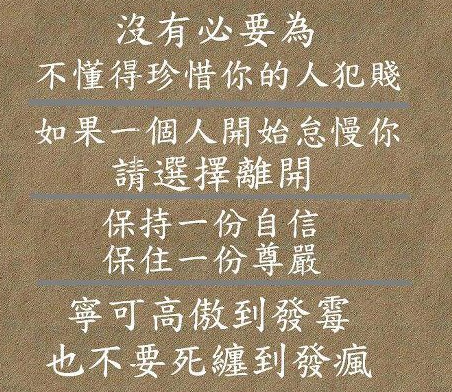 沒有必要為
不懂得珍惜你的人犯賤
如果一個人開始怠慢你
請選擇離開
保持一份自信
保住一份尊嚴
寧可高傲到發霉
也不要死纏到發瘋